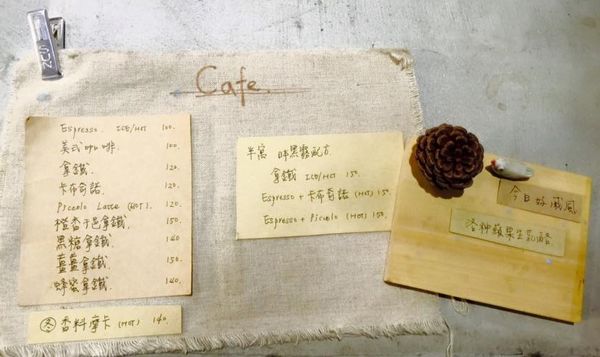 Cafe.
Espresso. ICE/HOT 100.
美式咖啡. 100.
拿鐵. 120.
卡布奇諾. 120.
Piccolo Latte (HOT). 120.
橙香干邑拿鐵. 150.
黑糖拿鐵. 140
藍藍拿鐵. 150.
蜂蜜拿鐵. 140.
冬 香料摩卡 (HOT) 140.
半寓 配方
拿鐵 ICE/HOT 150.
Espresso + 卡布奇諾 (HOT) 150.
Espresso + Piccolo (HOT) 150.
今日好戚風
洛神蘋果生乳酪